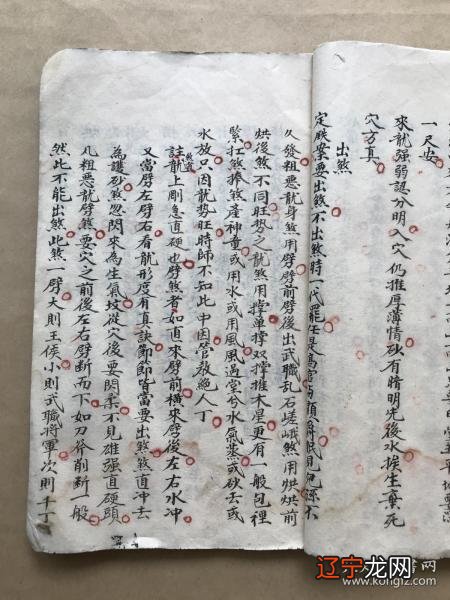 一尺安
來龍强弱認分明入穴仍推厚薄情砂有睛明先後水挨生棄死
穴方真
出煞
定厥案要出煞不出煞時一代罷任是為官
久發粗惡龍身煞用劈劈前劈後出武職乱石嵯峨煞用烘烘前
烘後煞不同旺势之龍煞用撑单撑双撑推木星更有一般包裡
緊扛煞捧煞產神童或用水或用風風過堂兮水氣蒸或砂去或
水放只因龍势旺時師不知此中因管教絕人丁
註龍上剛急直硬也劈煞者如直來劈前橫來劈後左右水冲
又當劈左劈右看龍形度有真訣節節皆當要出煞煞直冲去
為護砂煞忽閃來為生氣坟從穴後要閃柔不見雄强直硬頭
凡粗惡龍劈煞要穴之前後左右劈断而下如刀斧削断一般
然此不能出煞此煞一劈大則王侯小則武職將軍次則千丁
辽宁龙网
www.kongfz.com